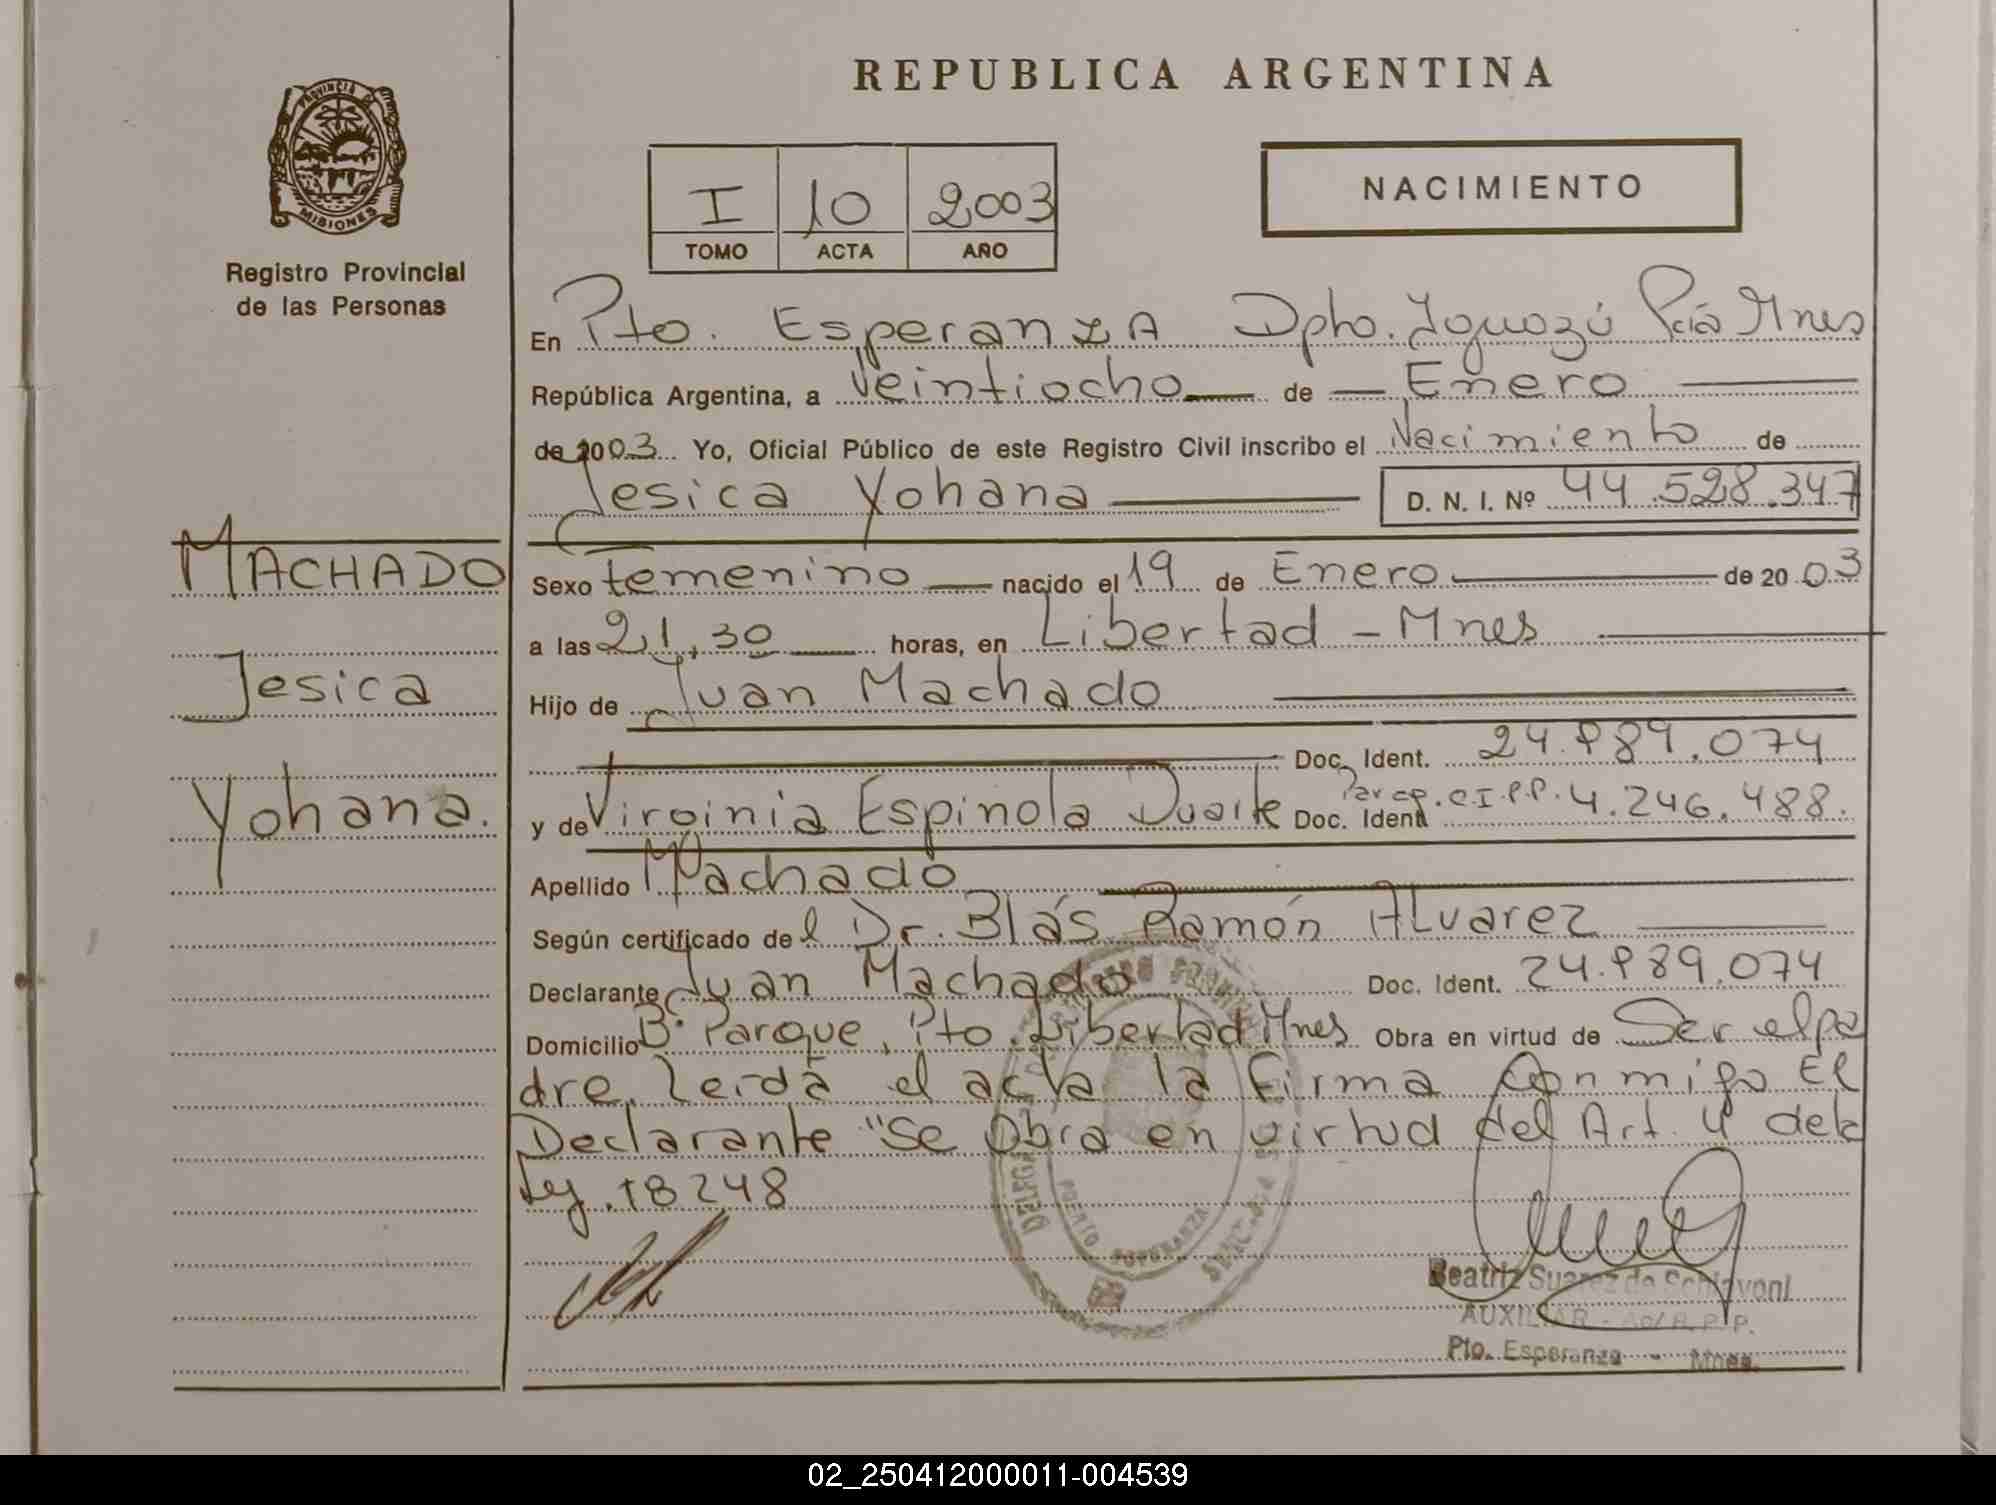 REPUBLICA ARGENTINA
PROVINCIA DE
MISIONES
Registro Provincial
de las Personas
I 10 2003
TOMO ACTA AÑO
NACIMIENTO
En Pto. Esperanza Dpto. Iguazú Pcia Mnes
República Argentina, a Veintiocho de Enero
de 2003 Yo, Oficial Público de este Registro Civil inscribo el Nacimiento de
Jesica Yohana D. N. I. Nº 44.528.347
MACHADO
Jesica
Yohana.
Sexo Femenino nacido el 19 de Enero de 2003
a las 21,30 horas, en Libertad - Mnes
Hijo de Juan Machado
Doc. Ident. 24.989.074
y de Virginia Espinola Duarte Doc. Ident. C.I.P.P. 4.246.488.
Apellido Machado
Según certificado del Dr. Blás Ramón Alvarez
Declarante Juan Machado Doc. Ident. 24.989.074
Domicilio Bº Parque, Pto. Libertad Mnes Obra en virtud de Ser el pa
dre, leida el acta la firma conmigo El
Declarante "Se Obra en virtud del Art. 4 de la
Ley. 18248
PUERTO ESPERANZA
Beatriz Suarez de Schiavoni
AUXILIAR - R.P.P.
Pto. Esperanza - Mnes.
02_250412000011-004539